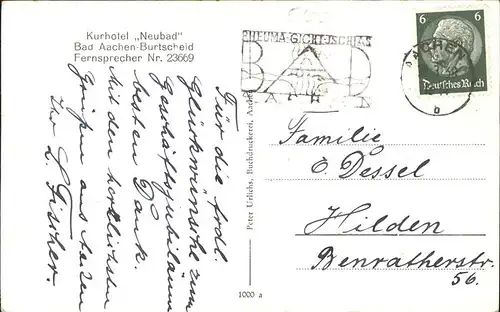 Kurhotel „Neubad"
Bad Aachen-Burtscheid
Fernsprecher Nr. 23669
Für die frdl.
Glückwünsche zum
Geschäftsjubiläum
besten Dank.
Mit den herzlichsten
Grüßen aus Aachen
L. Fischer.
Peter Urlichs, Buchdruckerei, Aachen
1000 a
RHEUMA-GICHT-ISCHIAS
BAD
AACHEN
AACHEN
b
6 6
Deutsches Reich
Familie
E. Dessel
Hilden
Benratherstr.
56.